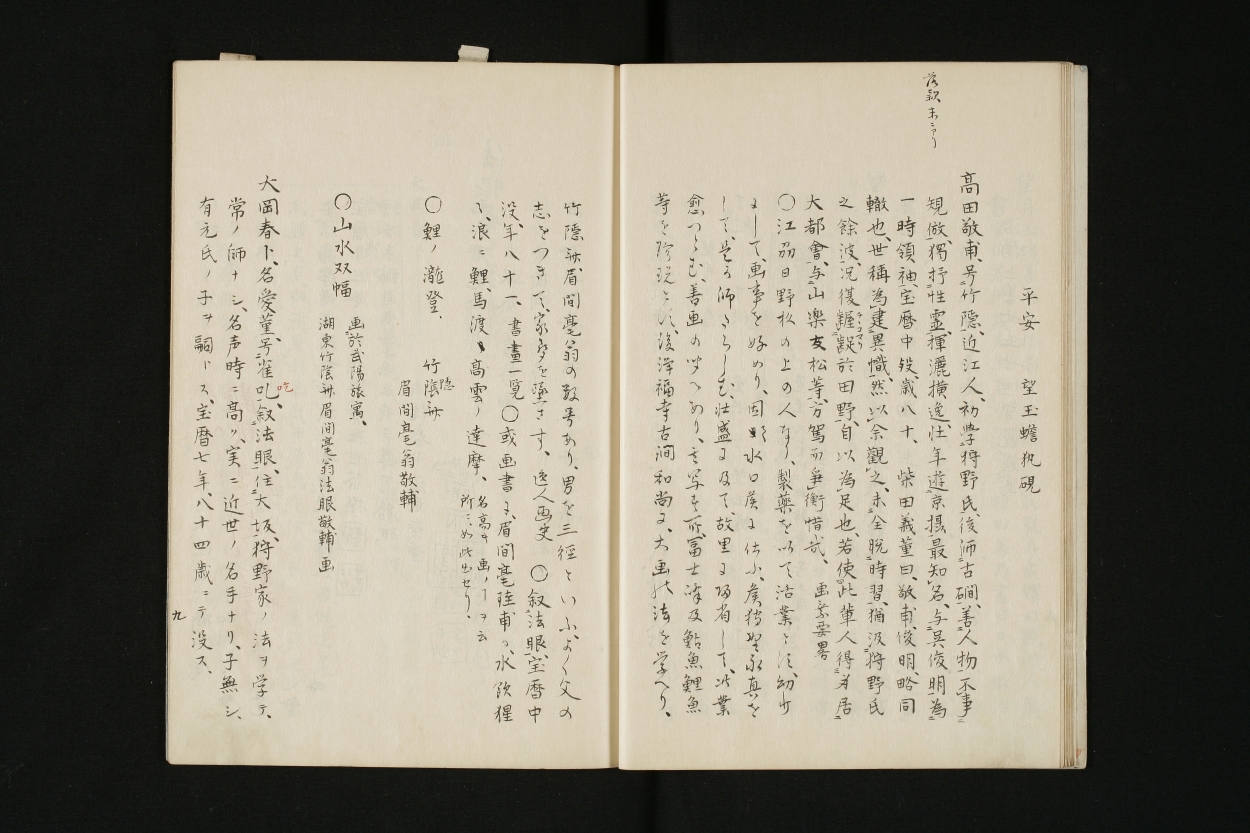 落款末ニアリ
平安　望玉蟾執硯
高田敬甫、号竹隠、近江人、初学狩野氏、後師古磵、善人物、不事
規倣、獨抒性霊、揮灑横逸、壮年遊京摂、最知名、与呉俊明為
一時領袖、宝暦中歿、歳八十、柴田義董曰、敬甫、俊明略同
轍也、世称為建異幟、然以余觀之、未全脱時習、猶汲狩野氏
之餘波、況復齷齪於田野、自以為足也、若使此輩人得才居
大都會、与山樂友松等、方駕而爭衡惜哉、　画乗要畧
〇江州日野杉の上の人なり、製薬を以て活業とす、幼少
にして、画事を好めり、因て水口侯に仕ふ、侯狩野永真を
して、是が師たらしむ、壮盛に及て、故里に帰省して、此業
愈つとむ、善画の聞へあり、其写す所、冨士津及鮎魚鯉魚
等を珍玩とす、後浄福寺古澗和尚に、大画の法を学へり、
竹隠齋、眉間毫翁の数号あり、男を三徑といふ、よく父の
志をつきて、家聲を墜さす、近人画史　〇叙法眼、宝暦中
没、年八十一、書畫一覧〇或画書に、眉間毫佳甫の、水飲猩
々、浪ニ鯉、馬渡、高雲ノ達摩、名高キ画ノ
所ニ如此出セリ、
〇鯉ノ瀧登、　竹隠齋
眉間毫翁敬輔
〇山水双幅　画於武陽旅寓、
湖東竹陰齋眉間毫翁法眼敬輔画
大岡春卜、名愛董、号雀叱、叙法眼、住大坂、狩野家ノ法ヲ学テ、
吃
常ノ師ナシ、名声時ニ高ク、実ニ近世ノ名手ナリ、子無シ、
有元氏ノ子ヲ嗣トス、宝暦七年、八十四歳ニテ没ス、
九